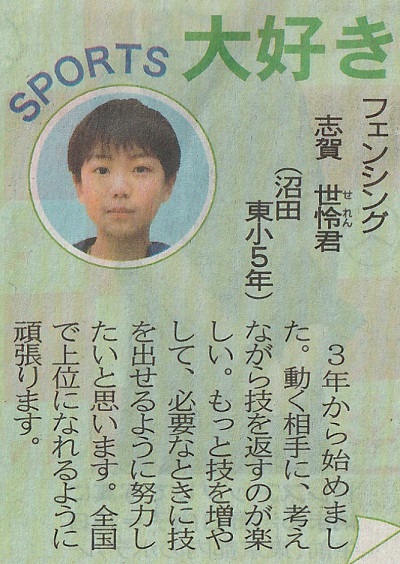 SPORTS 大好き
フェンシング
志賀 世怜君
せれん
(沼田
東小5年)
3年から始めまし
た。動く相手に、考え
ながら技を返すのが楽
しい。もっと技を増や
して、必要なときに技
を出せるように努力し
たいと思います。全国
で上位になれるように
頑張ります。